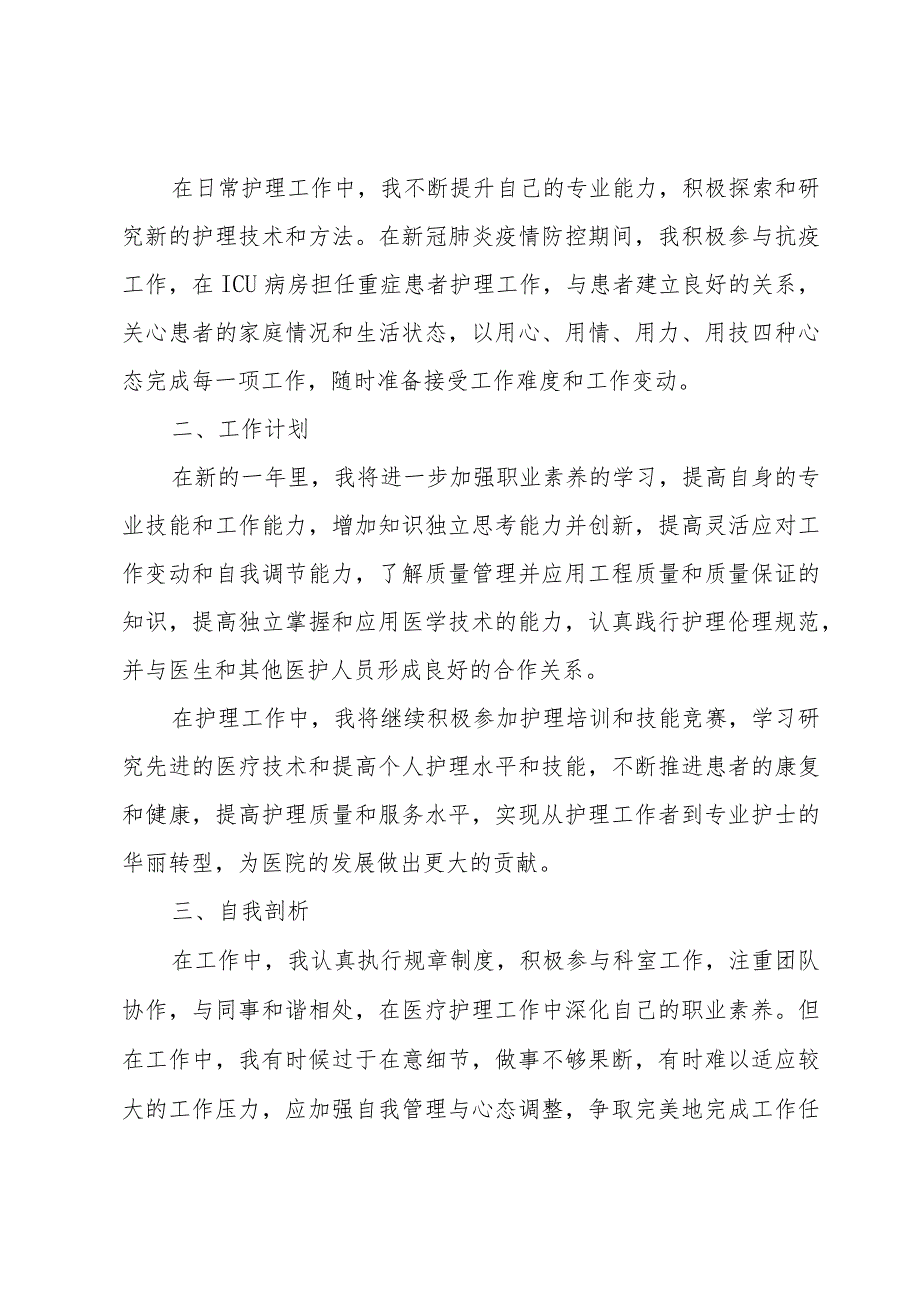 在日常护理工作中，我不断提升自己的专业能力，积极探索和研
究新的护理技术和方法。在新冠肺炎疫情防控期间，我积极参与抗疫
工作，在 ICU 病房担任重症患者护理工作，与患者建立良好的关系，
关心患者的家庭情况和生活状态，以用心、用情、用力、用技四种心
态完成每一项工作，随时准备接受工作难度和工作变动。
二、工作计划
在新的一年里，我将进一步加强职业素养的学习，提高自身的专
业技能和工作能力，增加知识独立思考能力并创新，提高灵活应对工
作变动和自我调节能力，了解质量管理并应用工程质量和质量保证的
知识，提高独立掌握和应用医学技术的能力，认真践行护理伦理规范，
并与医生和其他医护人员形成良好的合作关系。
在护理工作中，我将继续积极参加护理培训和技能竞赛，学习研
究先进的医疗技术和提高个人护理水平和技能，不断推进患者的康复
和健康，提高护理质量和服务水平，实现从护理工作者到专业护士的
华丽转型，为医院的发展做出更大的贡献。
三、自我剖析
在工作中，我认真执行规章制度，积极参与科室工作，注重团队
协作，与同事和谐相处，在医疗护理工作中深化自己的职业素养。但
在工作中，我有时候过于在意细节，做事不够果断，有时难以适应较
大的工作压力，应加强自我管理与心态调整，争取完美地完成工作任